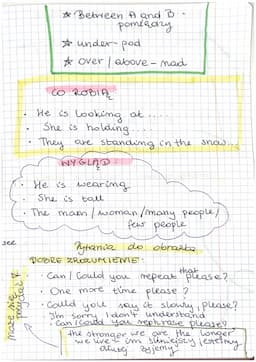 ★ Between A and B -
pomiędzy
★ under - pod
★ over / above - nad
CO ROBIĄ
· He is looking at ....
· She is holding ....
· They are standing in the snow...
WYGLĄD
· He is wearing
· She is tall
· The man / woman / many people /
few people
see
Pytania do obrazka
DOBRE ZROZUMIENIE:
· Can / Could you repeat that please?
· One more time please?
· Could you say it slowly, please?
· I'm sorry I don't understand
· Can / Could you rephrase please?
może się
przydać
the stronger we are the longer
we live - im silniejsi jesteśmy
dłużej żyjemy